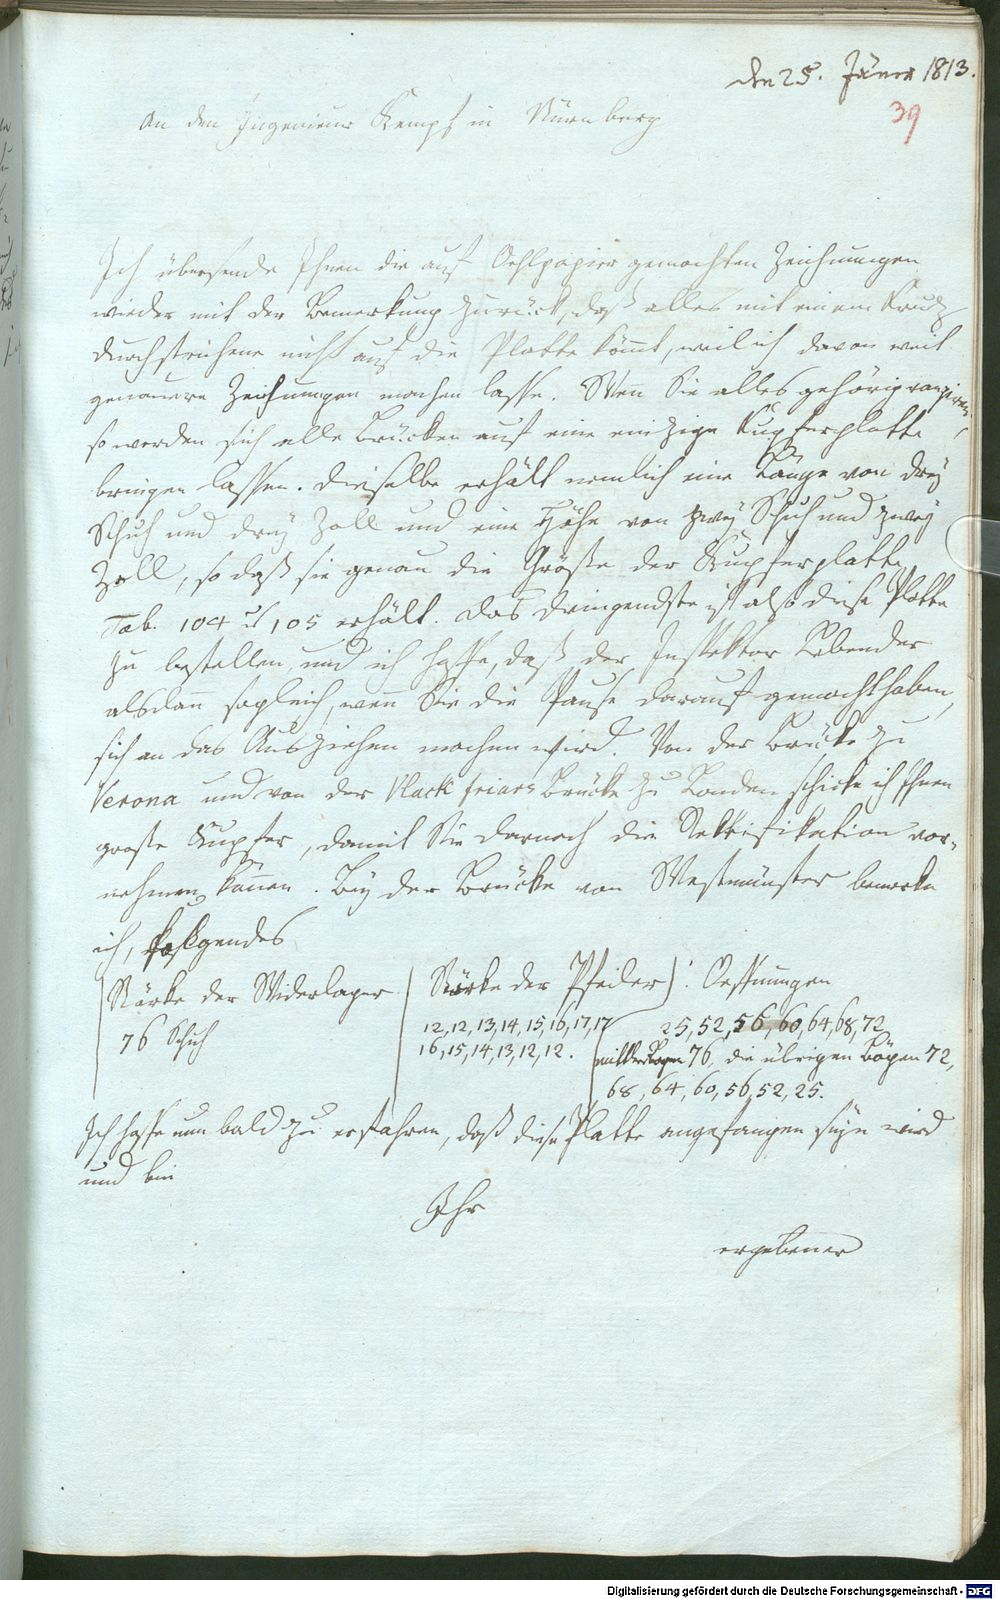 den 25. Jäner 1813.
39
An den Ingenieur Kempf in Nürnberg
Ich übersende Ihnen die auf Oehlpapier gemachten Zeichnungen
wieder mit der Bemerkung zurück, daß alles mit einem Kreuz
durchstrichene nicht auf die Platte kömmt, weil ich davon weit
genauere Zeichnungen machen lasse. Wenn Sie alles gehörig rangiren,
so werden sich alle Brücken auf eine einzige Kupferplatte
bringen lassen. Dieselbe erhält nemlich eine Länge von drey
Schuh und drey Zoll und eine Höhe von zwey Schuh und zwey
Zoll, so daß sie genau die Größe der Kupferplatte
Tab. 104 et 105 erhält. Das dringendste ist also diese Platte
zu bestellen, und ich hoffe, daß der Inspektor
alsdann sogleich, wenn Sie die Pause darauf gemacht haben,
sich an das Ausziehen machen wird. Von der Brücke zu
Verona und von der Black friars Brücke zu London schicke ich Ihnen
große Kupfer, damit Sie darnach die Rektifikation vor-
nehmen können. Bey der Brücke von Westmünster bemerke
ich, folgendes
Stärke der Widerlager
76 Schuh
Stärke der Pfeiler
12, 12, 13, 14, 15, 16, 17, 17
16, 15, 14, 13, 12, 12.
Oeffnungen
25, 52, 56, 60, 64, 68, 72
mittler Bogen 76, die übrigen Bögen 72,
68, 64, 60, 56, 52, 25.
Ich hoffe nun bald zu erfahren, daß diese Platte angefangen seyn wird
und bin
Ihr
ergebener
Digitalisierung gefördert durch die Deutsche Forschungsgemeinschaft - DFG